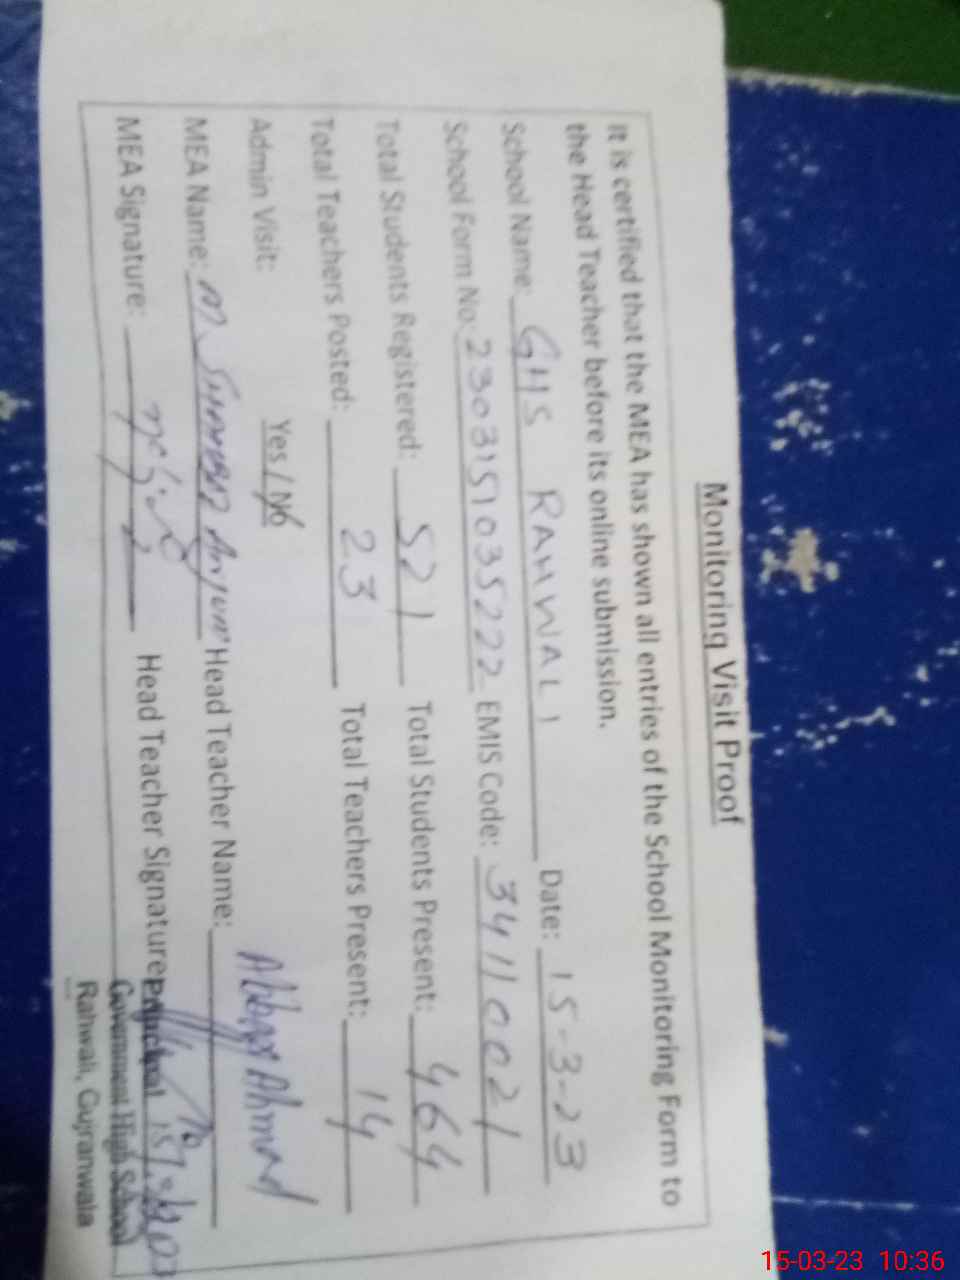 Monitoring Visit Proof
It is certified that the MEA has shown all entries of the School Monitoring Form to
the Head Teacher before its online submission.
School Name: GHS RAHWALI Date: 15-3-23
School Form No: 2303151035222 EMIS Code: 34110021
Total Students Registered: 521 Total Students Present: 464
Total Teachers Posted: 23 Total Teachers Present: 14
Admin Visit: Yes / No
MEA Name: M. Head Teacher Name: Abbas Ahmed
MEA Signature: Head Teacher Signature:
Principal
Government High School
Rahwali, Gujranwala
15-03-23 10:36